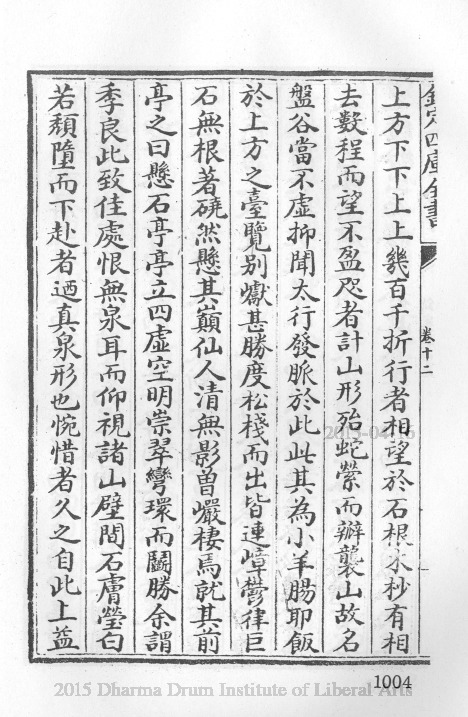 欽定四庫全書
卷十二
上方下下上上幾百千折行者相望於石根木杪有相
去數程而望不盈咫者計山形殆蛇縈而辦襲山故名
盤谷當不虛抑聞太行發脈於此此其為小羊腸耶飯
於上方之臺覽別巘甚勝度松棧而出皆連嶂鬱律巨
石無根著磽然懸其巔仙人清無影曽巖棲焉就其前
亭之曰懸石亭亭立四虛空明崇翠彎環而鬭勝余謂
季良此致佳處恨無泉耳而仰視諸山壁間石膚瑩白
若頽墮而下赴者迺真泉形也惋惜者久之自此上益
2015-04-16
1004
2015 Dharma Drum Institute of Liberal Arts